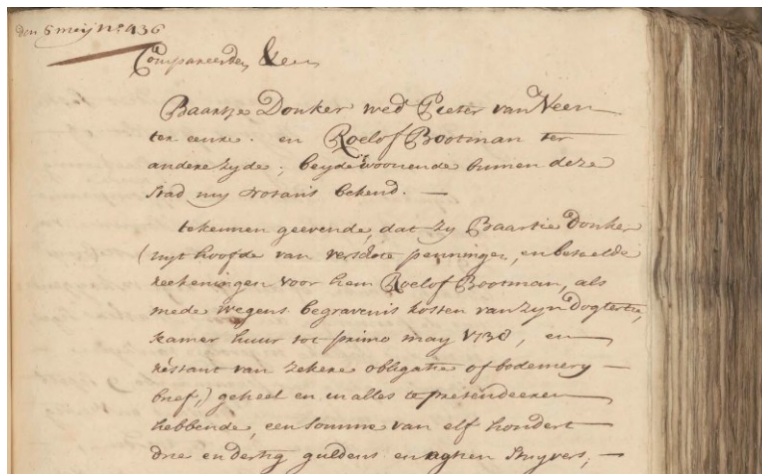 den 5 meij N:o 436
Compareerden, &en
Baartje Donker wed Pieter van Veen
ter eenre. en Roelof Bootman ter
andere zyde; beyde woonende binnen deze
Stad my Notaris bekend. —
te kennen geevende, dat zy Baartie Donker
(uyt hoofde van verschote penningen, en betaelde
reekeningen voor hem Roelof Bootman, als
mede wegens begravenis kosten van zyn Dogtertie,
kamer huur tot primo may 1738, en
restant van zekere obligatie of bodemery
brief,) geheel en in alles te pretendeeren
hebbende, een somme van elf hondert
drie en dertig guldens en agtien stuyvers,